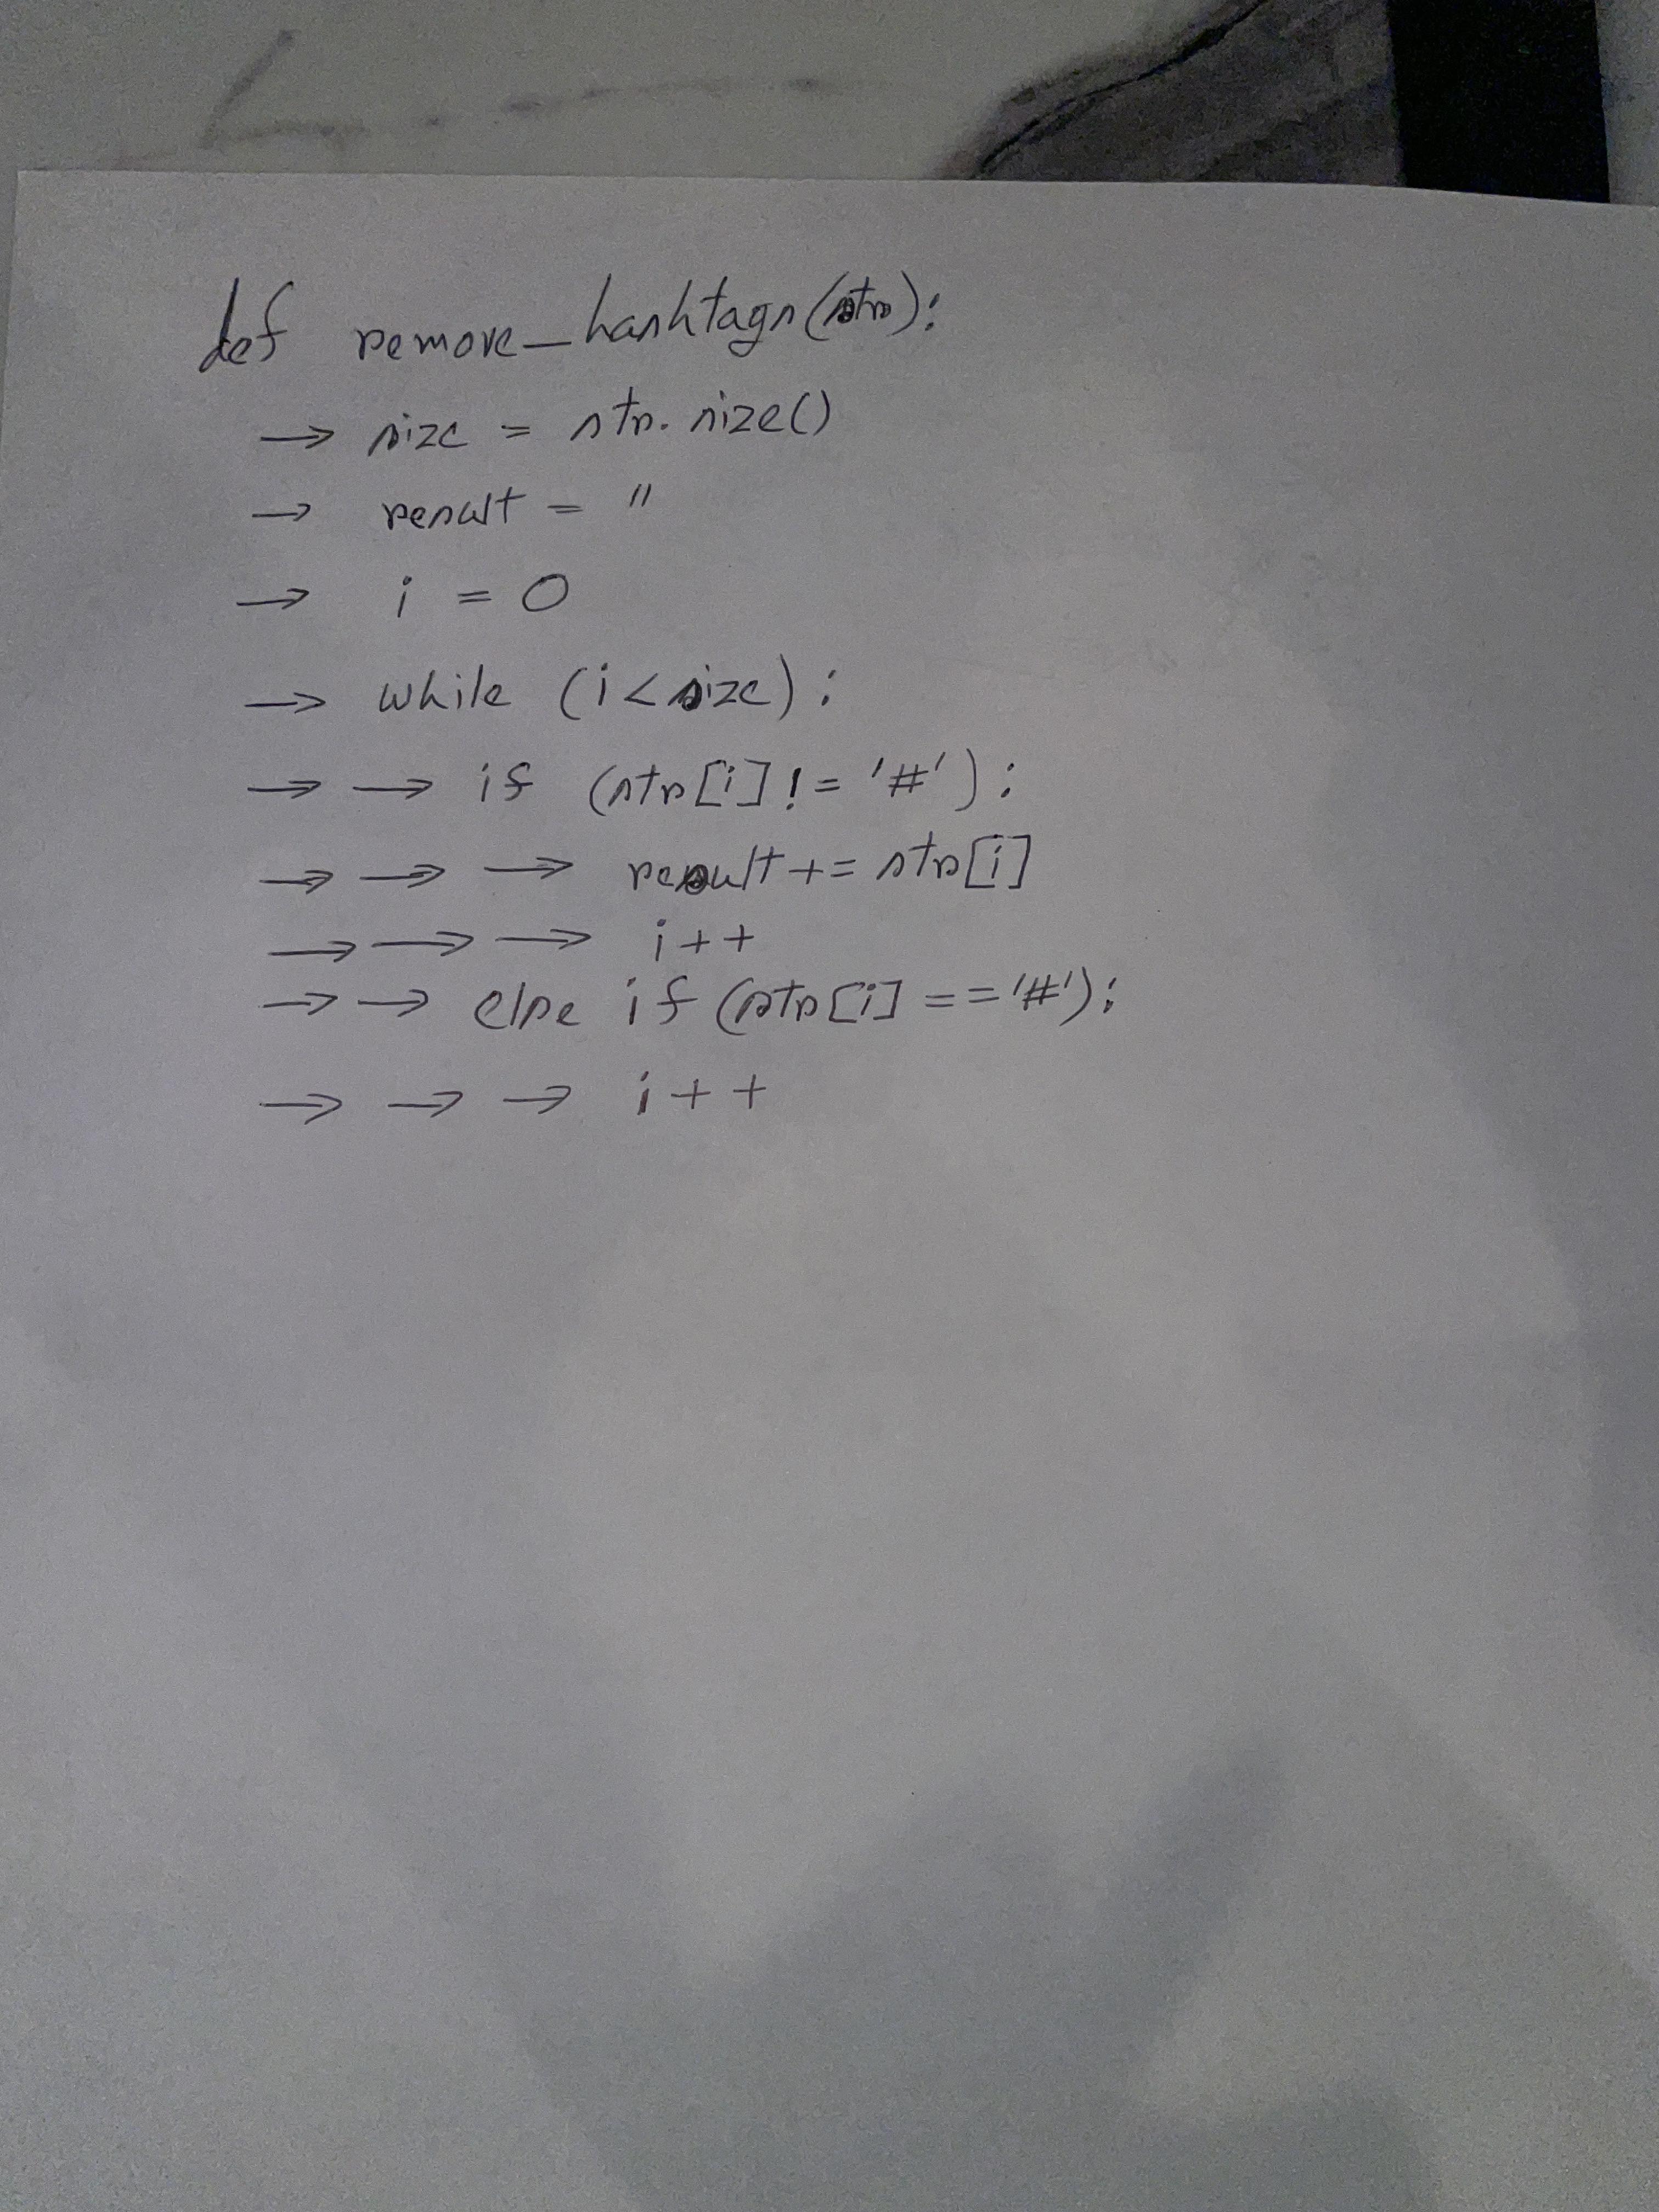 def remove_hashtags(str):
→ size = str.size()
→ result = ''
→ i = 0
→ while (i<size):
→ → if (str[i] != '#'):
→ → → result += str[i]
→ → → i++
→ → else if (str[i] == '#'):
→ → → i++